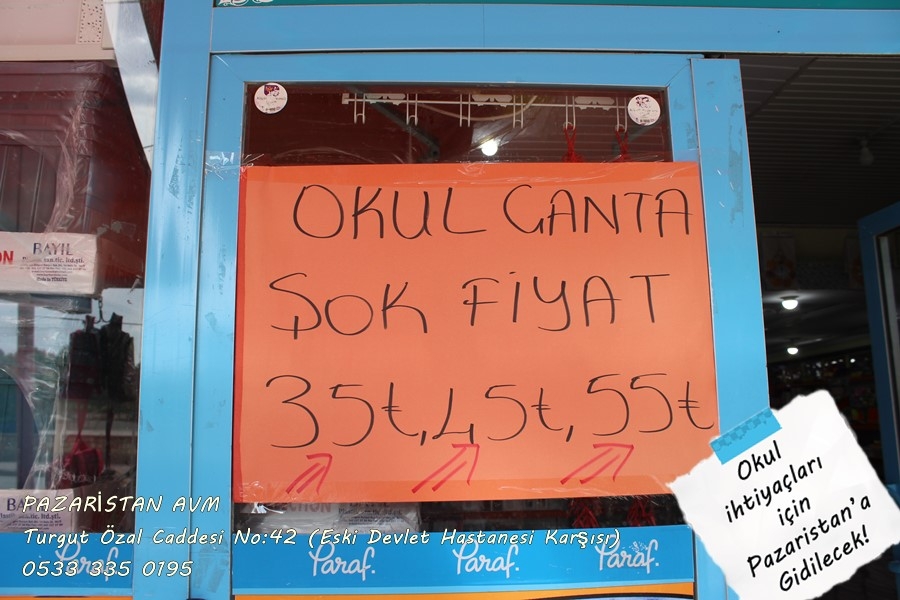 OKUL ÇANTA
ŞOK FİYAT
35₺, 45₺, 55₺
BAYIL
PAZARİSTAN AVM
Turgut Özal Caddesi No:42 (Eski Devlet Hastanesi Karşısı)
0533 335 0195
Paraf. Paraf. Paraf. Paraf.
Okul
ihtiyaçları
için
Pazaristan'a
Gidilecek!